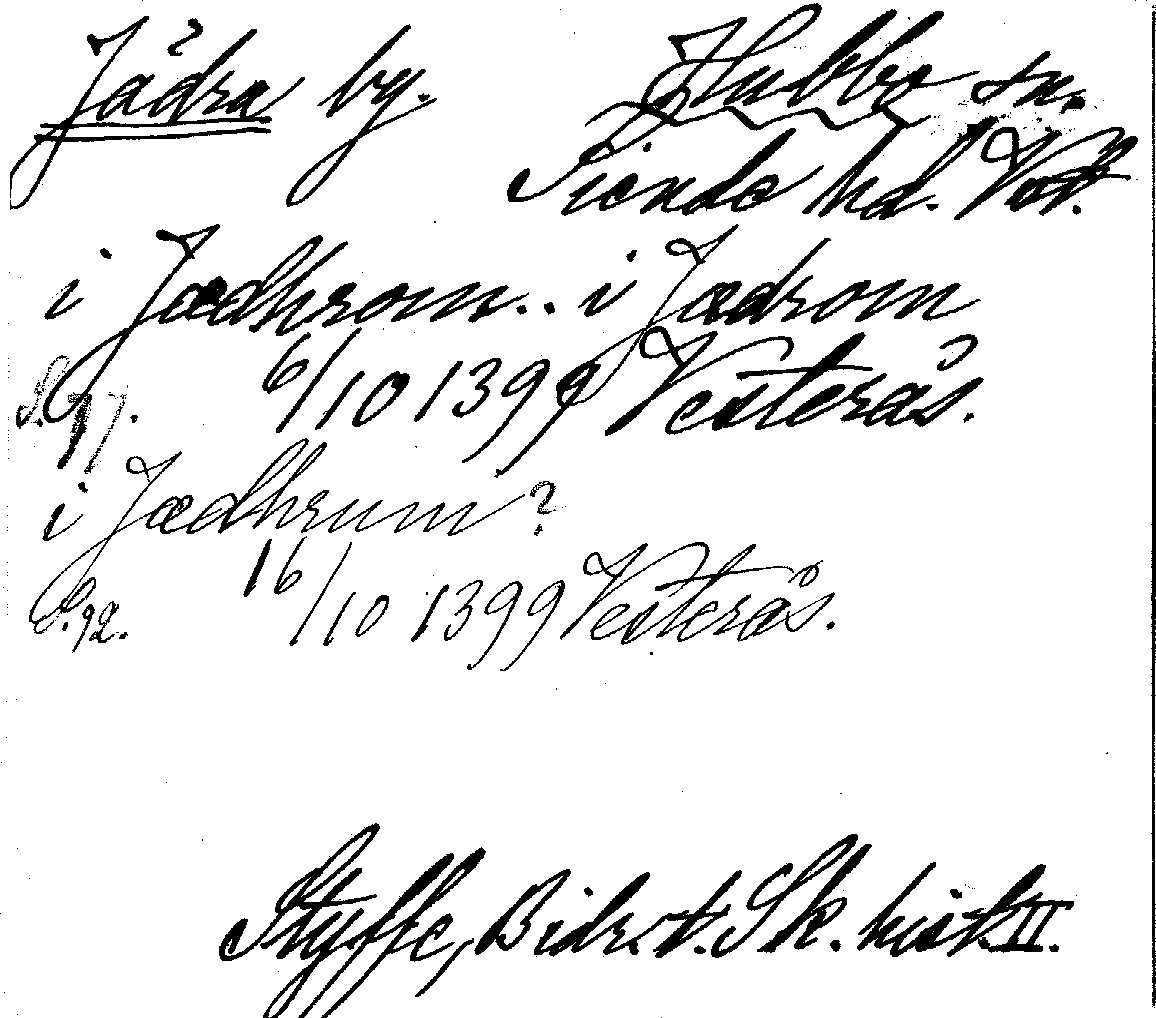 Jädra by. Hubbo sn.
Siende hd. Vstm.
i Jædhrom.. i Jædrom
S. 6/10 1399 Vesterås.
i Jædhrum?
S. 92. 16/10 1399 Vesterås.
Styffe, Bidr. t. Sk. hist. II.